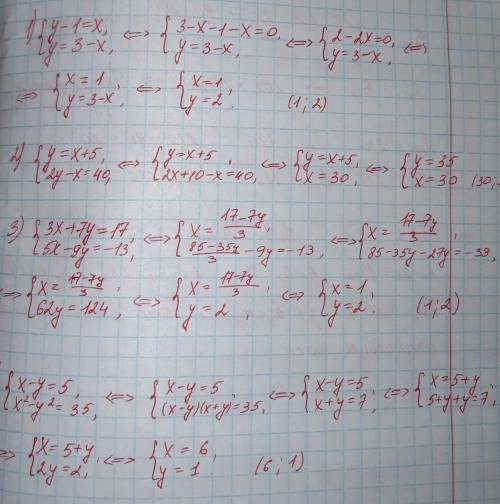 1) {y-1=x, y=3-x, <=> {3-x-1-x=0, y=3-x, <=> {2-2x=0, y=3-x, <=>
<=> {x=1, y=3-x; <=> {x=1, y=2. (1;2)
2) {y=x+5, 2y-x=40, <=> {y=x+5, 2x+10-x=40, <=> {y=x+5, x=30, <=> {y=35 x=30 (30;
3) {3x+7y=17, 5x-9y=-13, <=> {x=(17-7y)/3, (85-35y)/3-9y=-13, <=> {x=(17-7y)/3, 85-35y-27y=-39,
<=> {x=(17-7y)/3, 62y=124, <=> {x=(17-7y)/3, y=2, <=> {x=1, y=2. (1;2)
{x-y=5, x²-y²=35, <=> {x-y=5, (x-y)(x+y)=35, <=> {x-y=5, x+y=7, <=> {x=5+y, 5+y+y=7,
=> {x=5+y, 2y=2, <=> {x=6, y=1. (6;1)